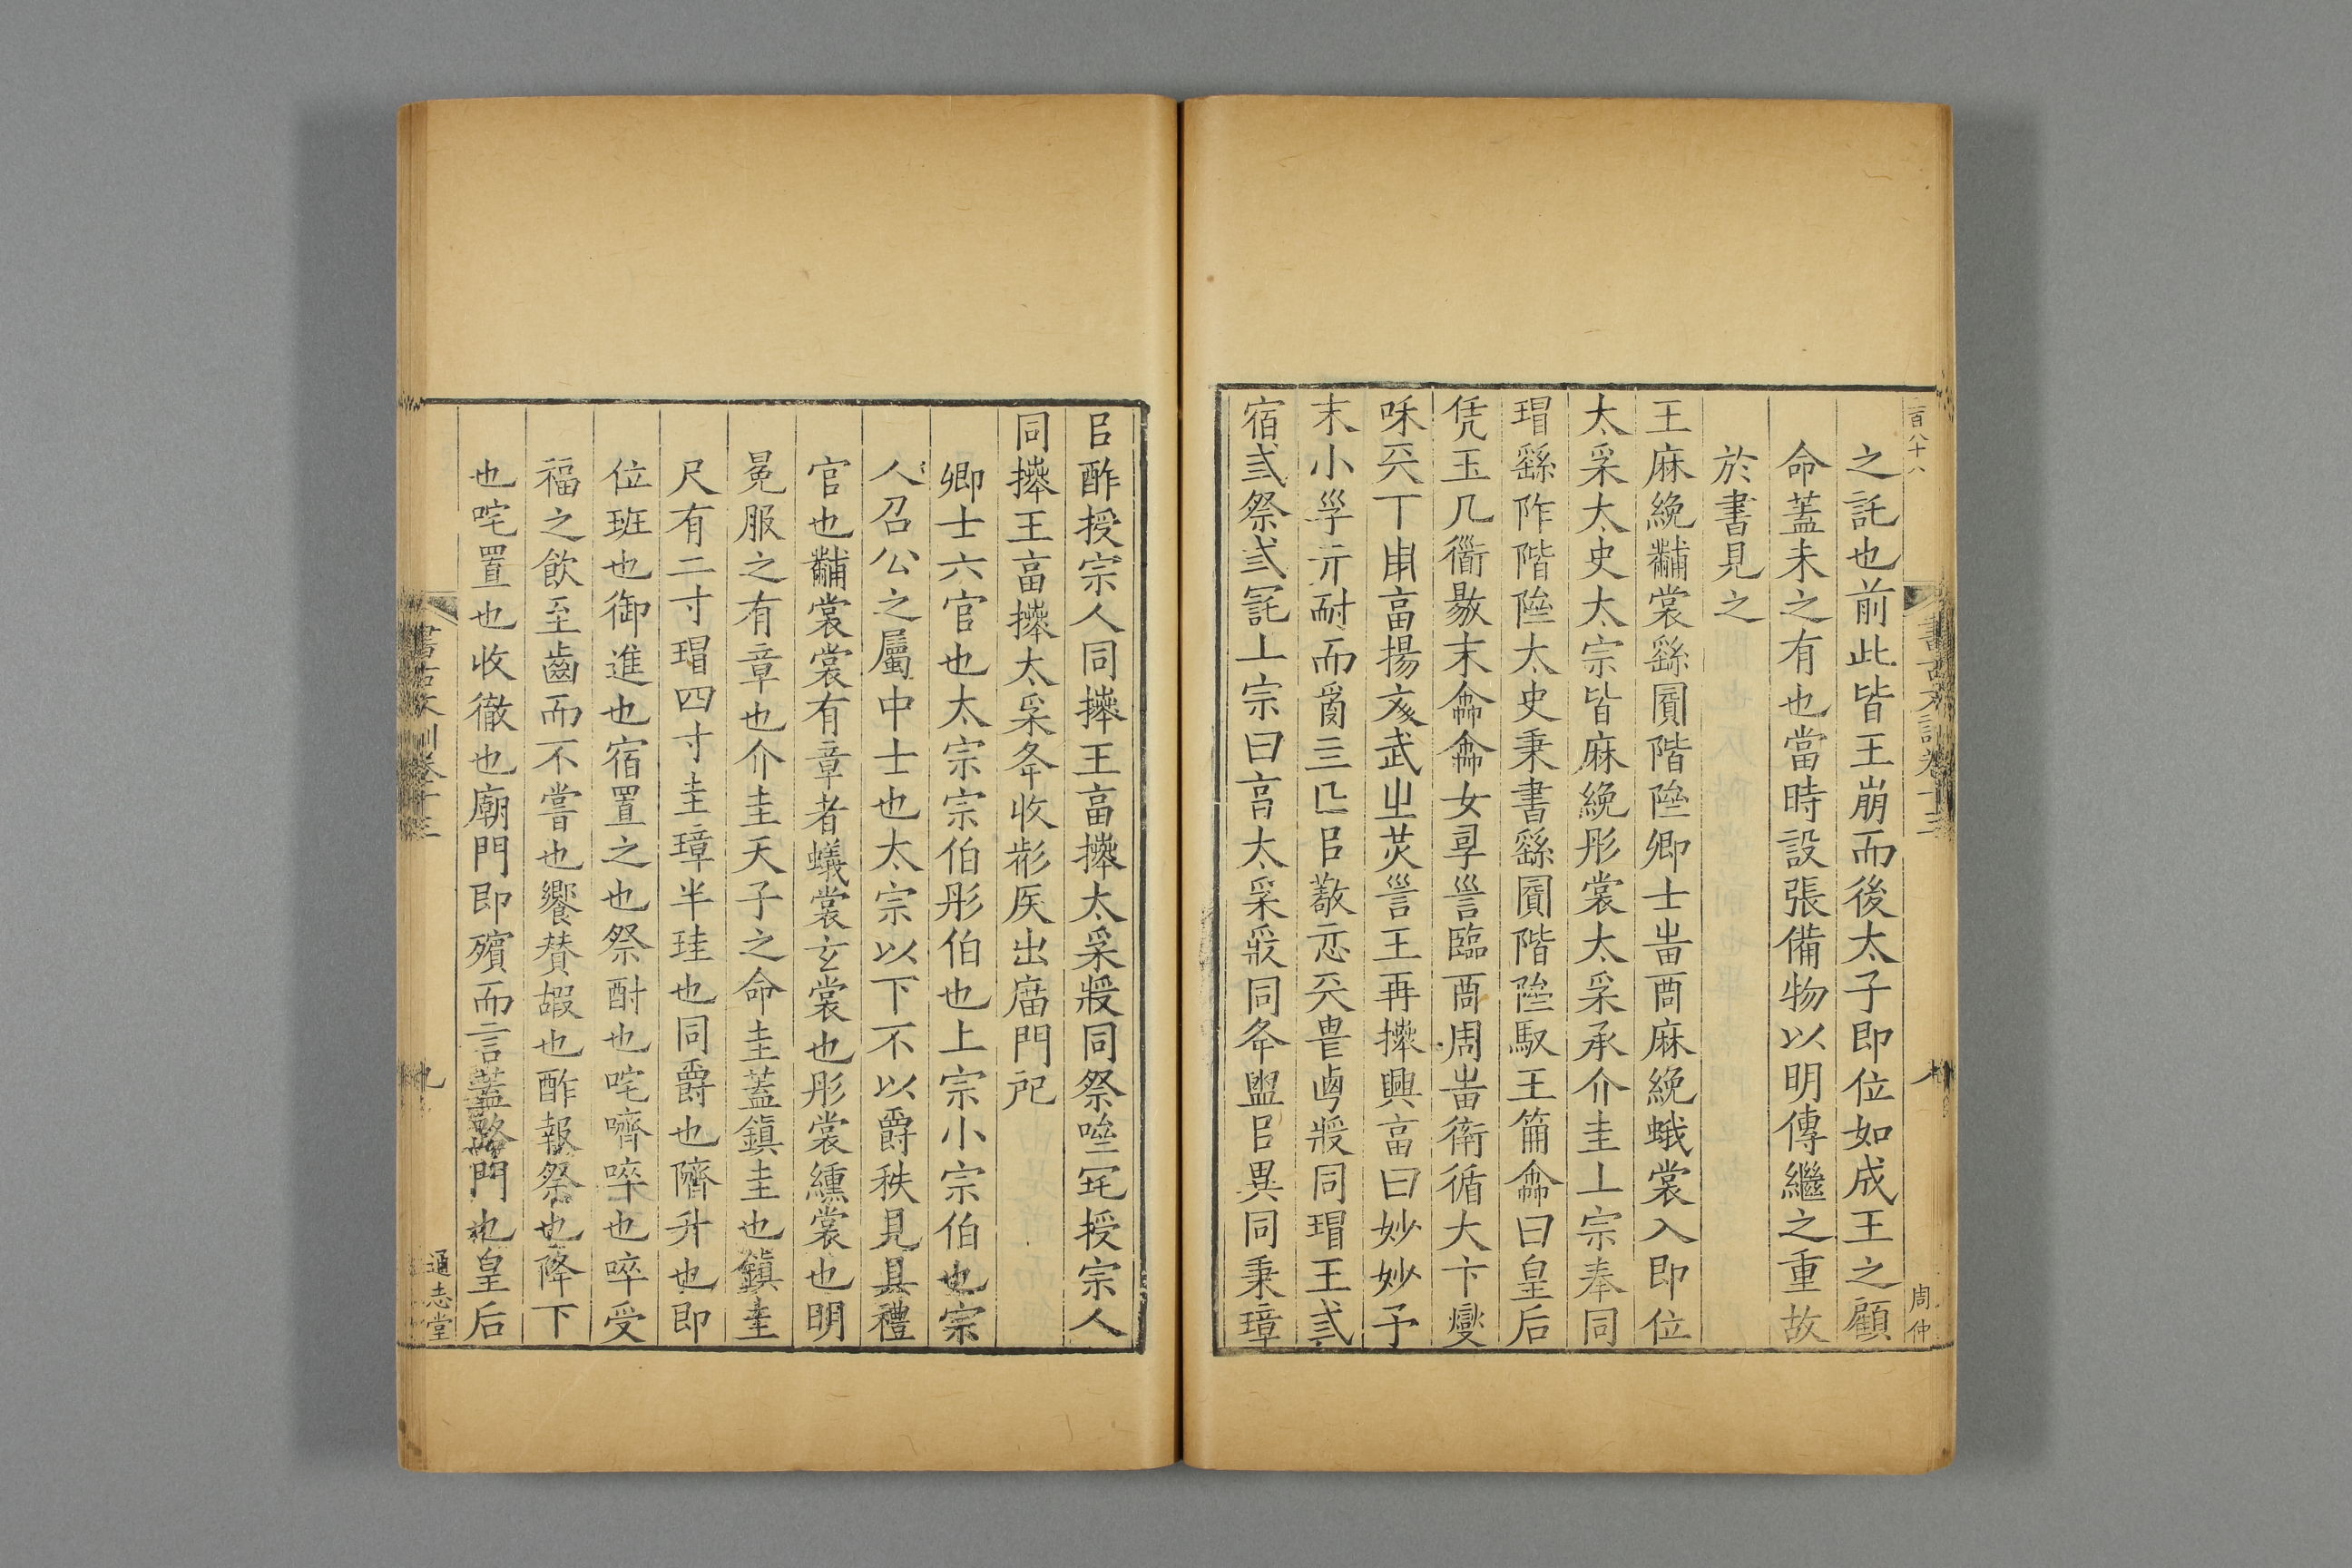 百八十八
書古文訓卷十三
八
周仲
之託也前此皆王崩而後太子即位如成王之顧
命蓋未之有也當時設張備物以明傳繼之重故
於書見之
王麻絻黼裳繇圓階隥卿士邦䢼麻絻蛾裳入即位
太采太史太宗皆麻絻彤裳太采承介圭丄宗奉同
瑁繇阼階隥太史秉書繇階隥馭王龠命曰皇后
凭玉几衟敭末龠命女享訔臨周䢼循大卞燮
咊兲丅畐揚文武㞢炗訔王再𢷎興畐曰妙妙予
末小孠亓耐而亂亖匚㠯敬忌兲畏卣同瑁王弎
宿弎祭弎詫丄宗曰亯太采同夅盥㠯異同秉璋
㠯酢授宗人同𢷎王畐𢷎太采同祭嚌宅授宗人
同𢷎王畐𢷎太采夅收彬矦出庿門祀
卿士六官也太宗宗伯彤伯也上宗小宗伯也宗
人召公之屬中士也太宗以下不以爵秩見具禮
官也黼裳裳有章者蟻裳玄裳也彤裳纁裳也明
冕服之有章也介圭天子之命圭蓋鎮圭也鎮圭
尺有二寸瑁四寸圭璋半珪也同爵也隮升也即
位班也御進也宿置之也祭酹也咤嚌啐也啐受
福之飲至齒而不嘗也饗賛嘏也酢報祭也降下
也咤置也收徹也廟門即殯而言蓋路門也皇后
書古文訓卷十三
九
通志堂